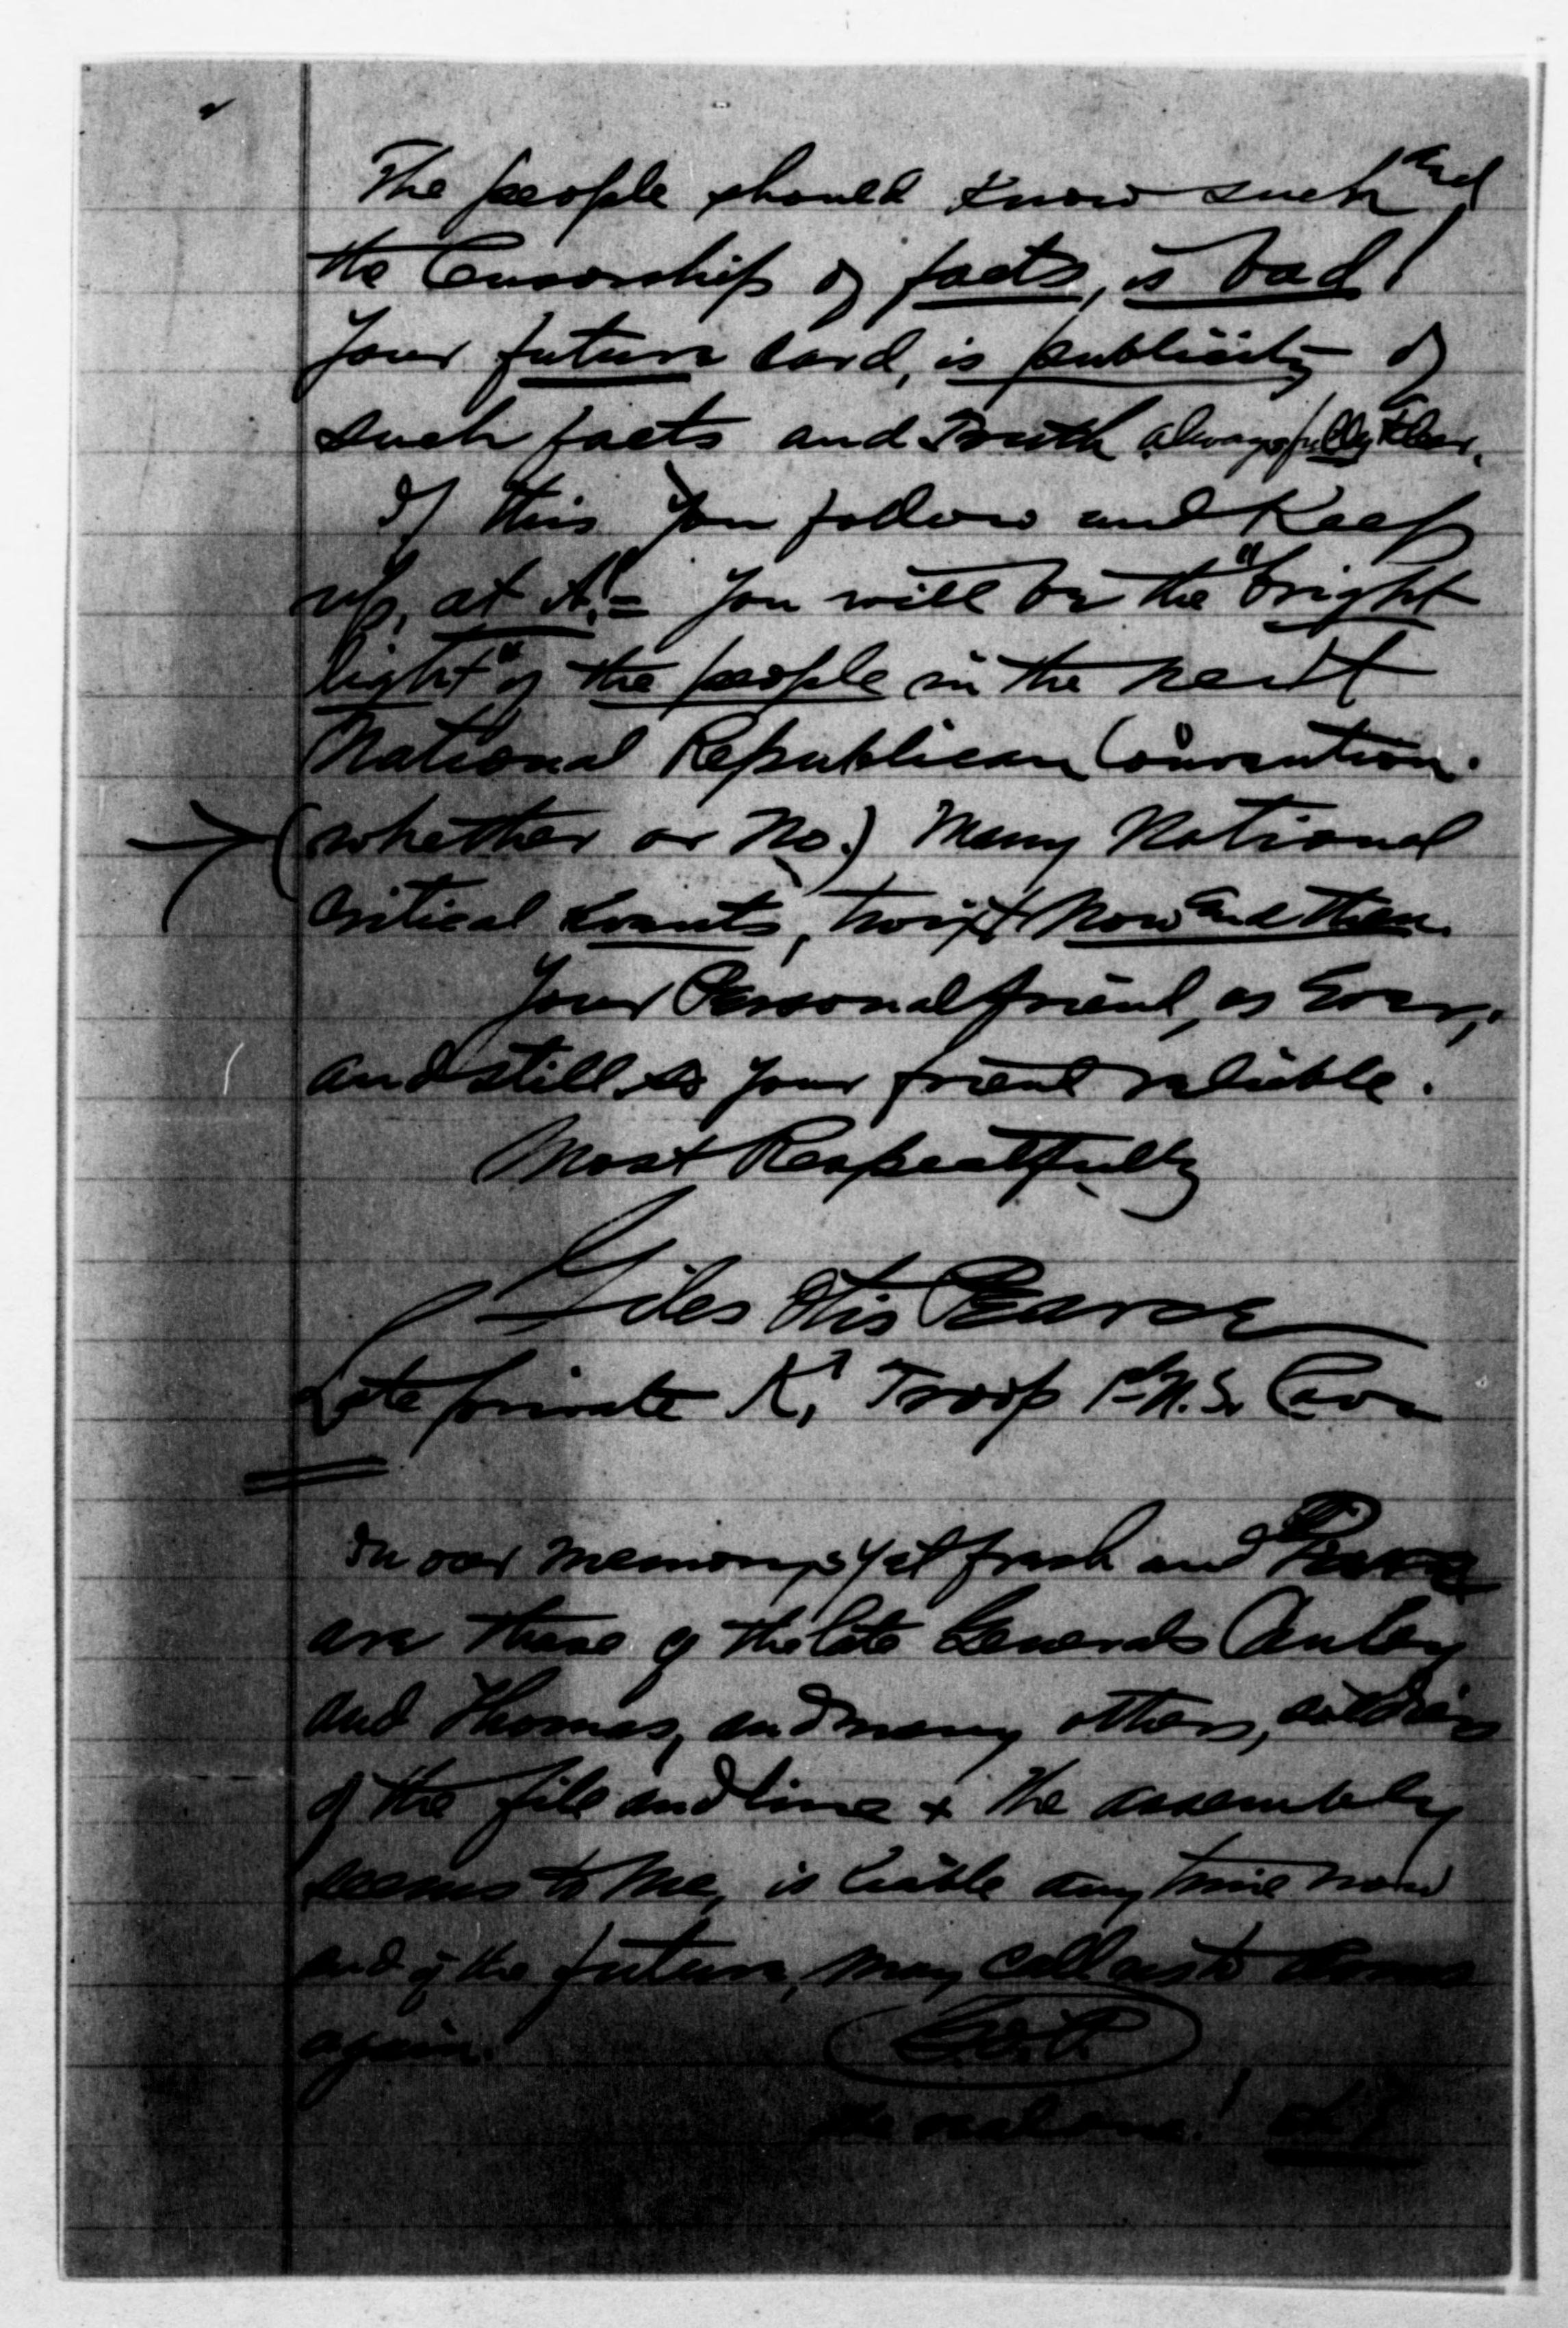 The people should Know such and
the Censorship of facts, is bad!
Your future card, is publicity of
such facts and Truth always fully Clear.
If this You follow and Keep
up, at it!= You will be the "bright
light" of the people in the next
National Republican Convention.
(whether or No.) Many National
Critical Events, twixt Now and then.
Your Personal friend, as Ever,
and still as your friend reliable.
Most Respectfully
Giles Otis Pearce
Late private K, Troop 1st N.S. Cav
In our memorys yet fresh and
are those of the late Generals
and Thomas, and many others, soldiers
of the file and line + the assembly
seems to me, is liable any time now
and of the future, may call us to
again. G.O.P.